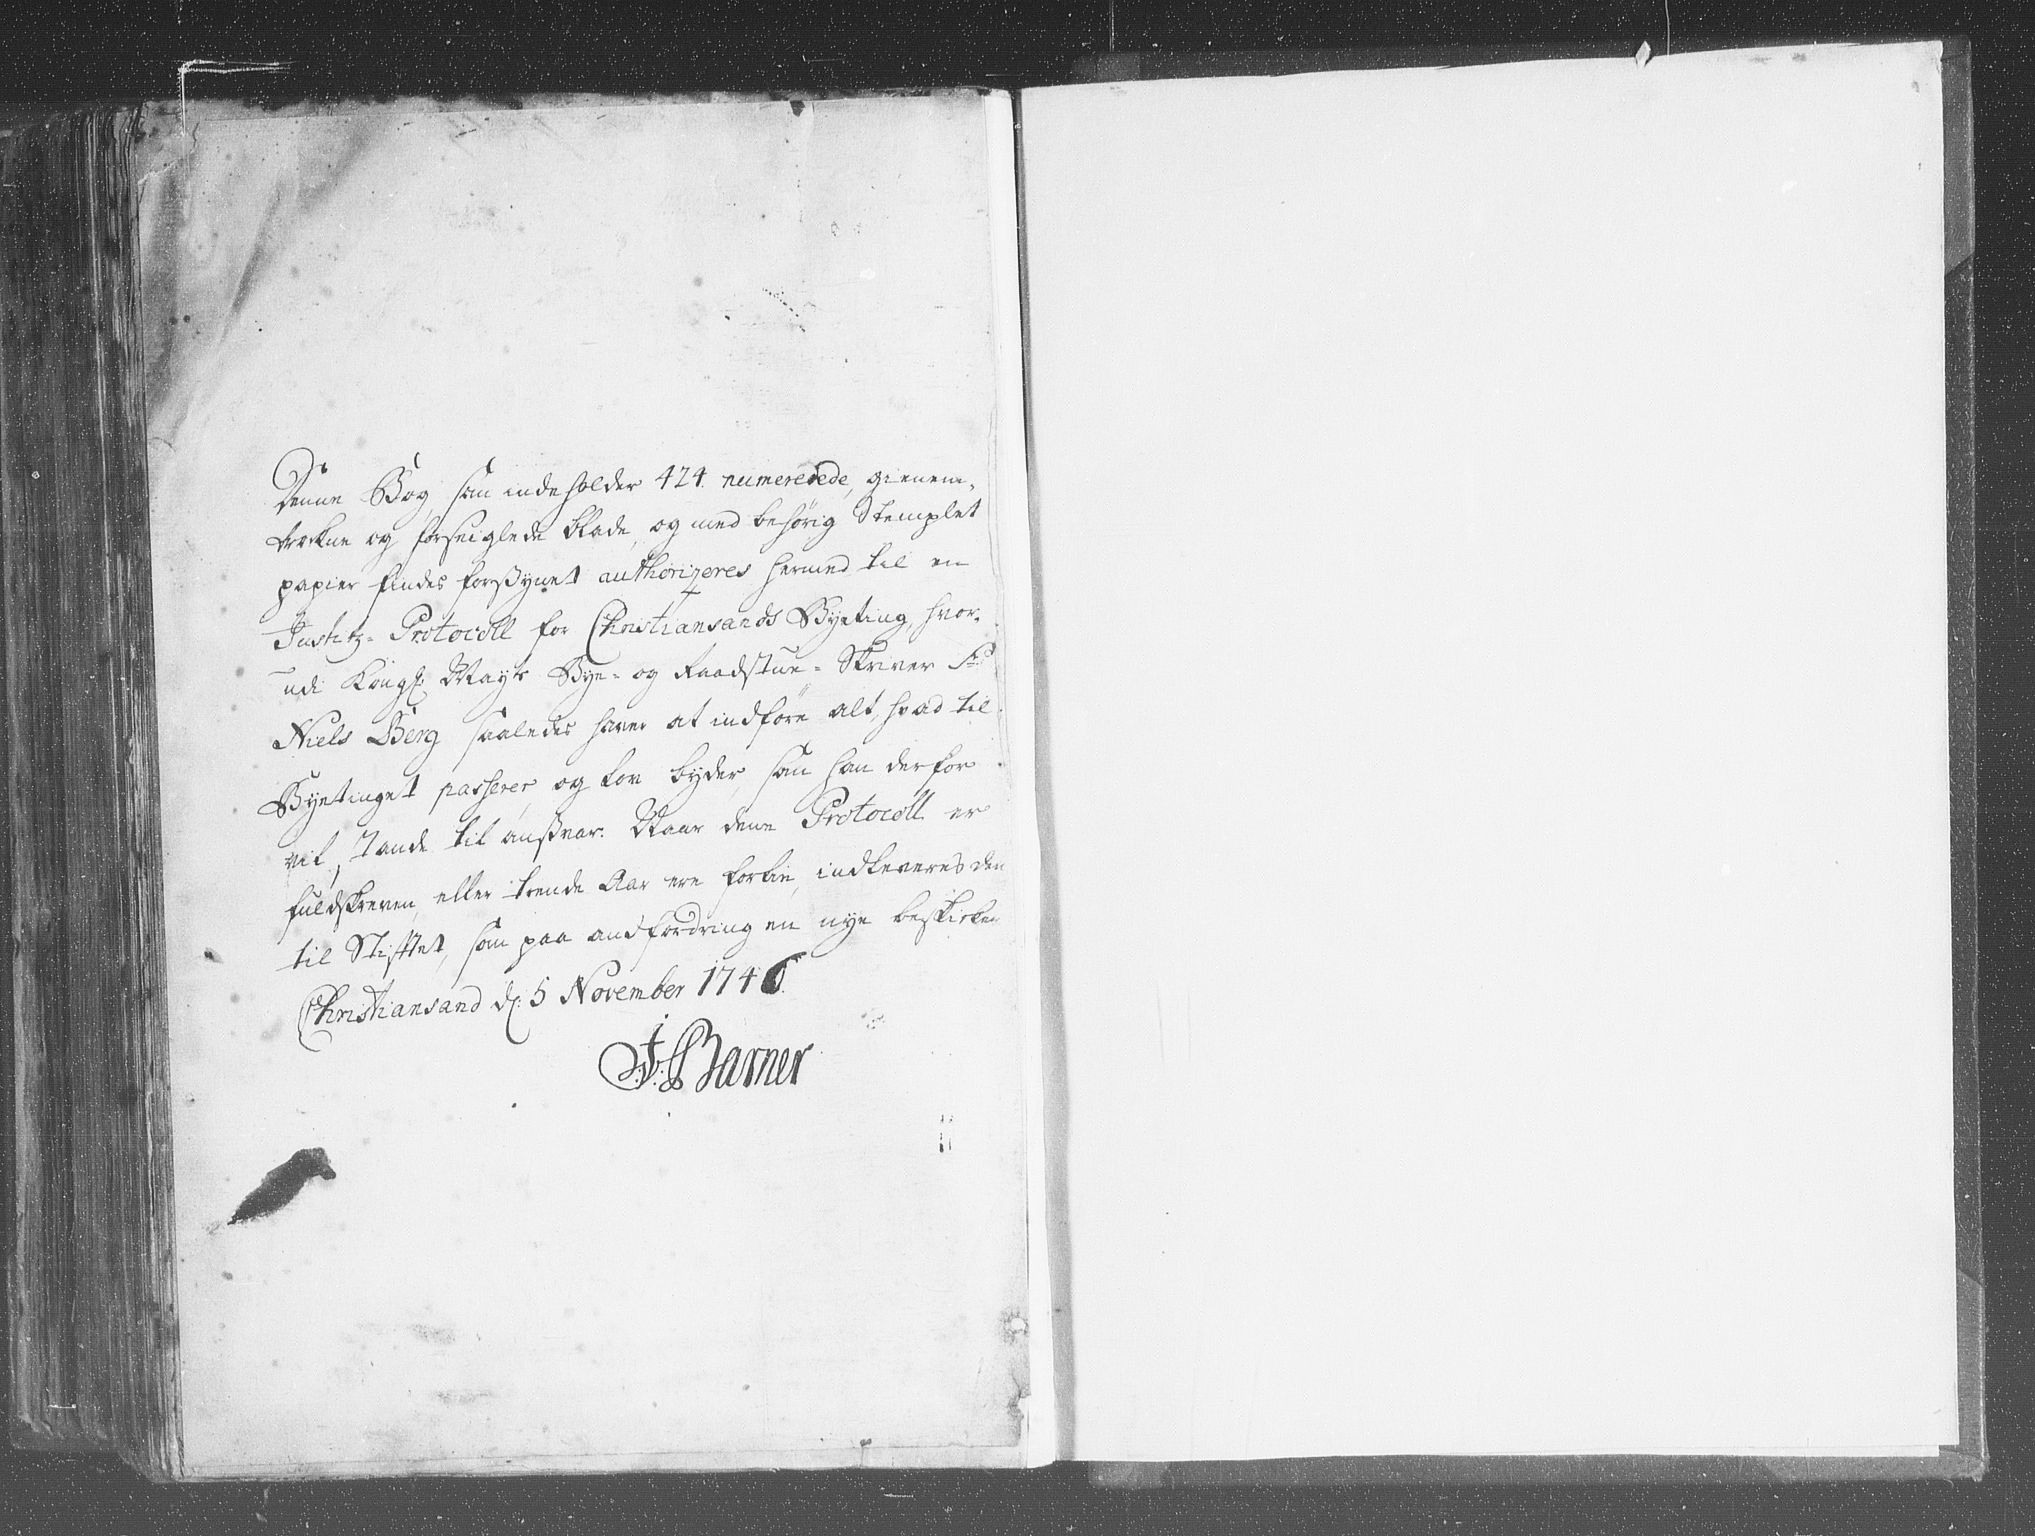 Denne Bog, som indeholder 424. numererede, gienem-
trækne og forseiglede blade, og med behørig Stemplet
papier findes forsÿnet authoriseres hermed til en
Justitz- Protocoll for Christiansands Byeting, hvor-
udi Kongl: Mayts Bye- og Raadstue- Skriver Sr
Niels Berg saaledes haver at indføre alt, hvad til
Byetinget passerer, og lov byder som han derfor
vil stande til ansvar. Naar denne Protocoll er
fuldskreven, eller trende Aar ere forbie, indleveres den
til Stifftet, som paa andfordring en nye beskicker
Christiansand d: 5 November 1746
J: C: Barner